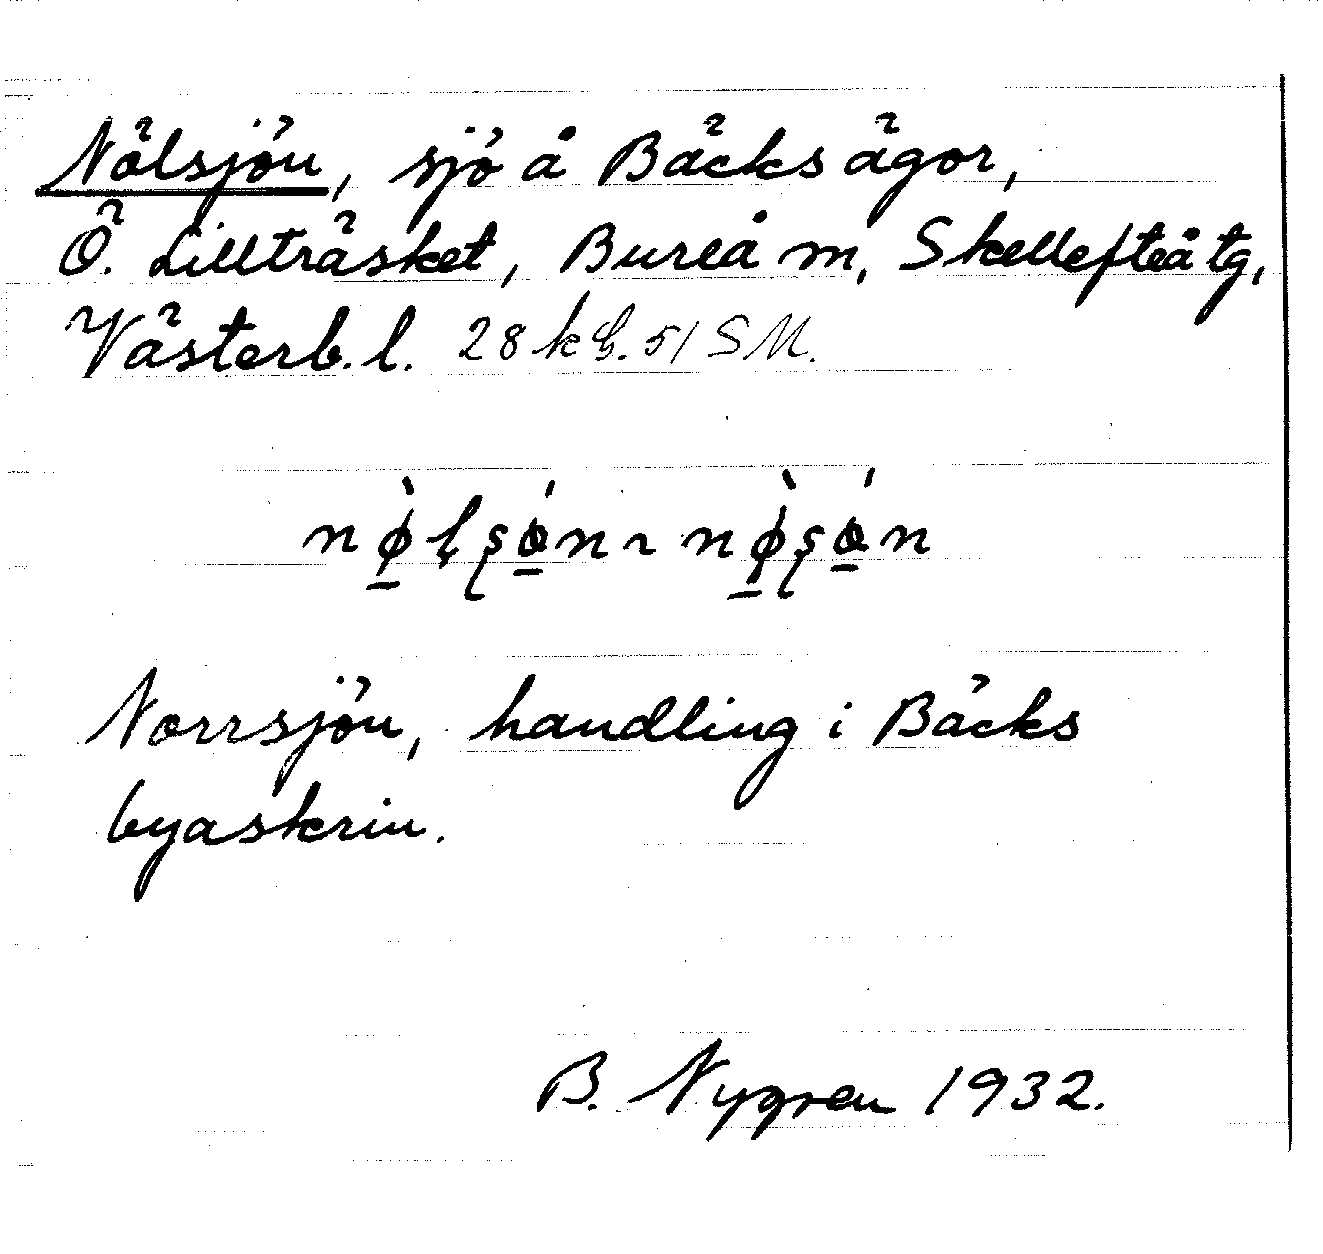 Nölsjön, sjö å Bäcks ägor,
Ö. Lillträsket, Bureå m, Skellefteå tg,
Västerb. l. 28 k G. 51 SM.
nø̀lsǿn ~ nø̀sǿn
Norrsjön, handling i Bäcks
byaskrin.
B. Nygren 1932.